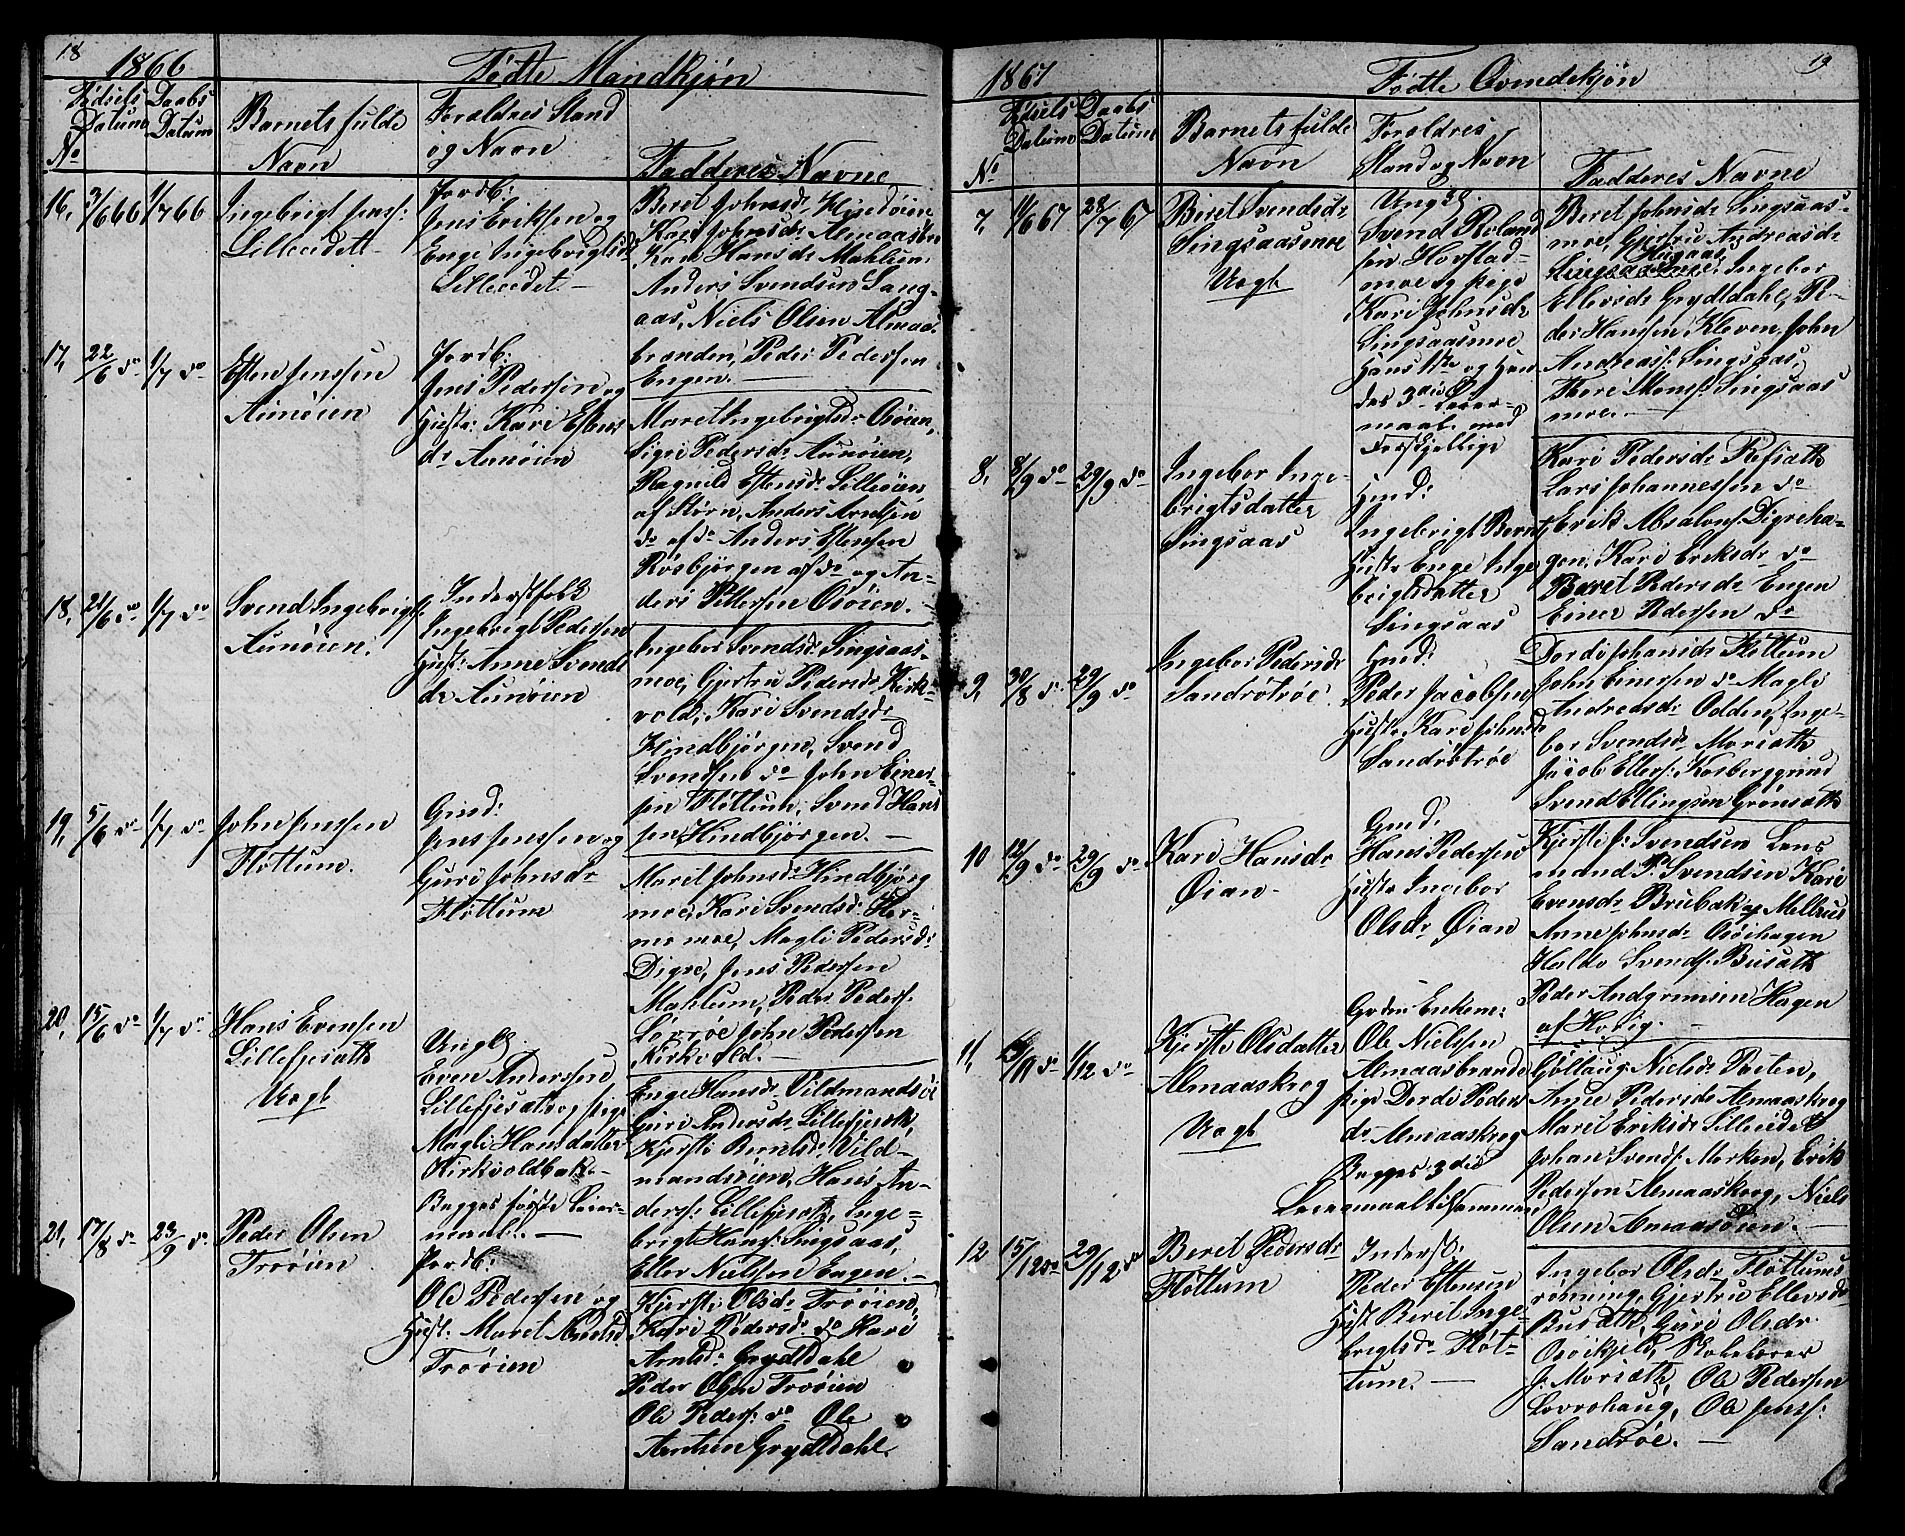 18
1866 Fødte Mandkjøn
No
Fødsels Datum
Daabs Datum
Barnets fulde Navn
Foreldres Stand og Navn
Fadderes Navne
16, 3/6 66 1/7 66
Ingebrigt Jenss:
Lilleeidet
Jordb:
Jens Eriksen og
Enge Ingebrigtsdr
Lilleeidet
Beret Johnsdr Hindøien
Kari Johnsdr Almaasbr
Kari Hansdr Mahlum
Anders Svendsen Sang-
aas, Niels Olsen Almaas
branden, Peder Pedersen
Engen.
17, 22/6 do 1/7 do
Esten Jenssen
Aunøien
Jordb:
Jens Pedersen og
Hustr: Kari Estens
dr Aunøien
Maret Ingebrigtsdr Osøien,
Sigri Pedersdr Aunøien,
Ragnild Estensdr Lilleøien
af Støren, Anders Arntsen
do af do Anders Estensen
Rosbjørgen af do og An-
ders Pettersen Osøien.
18, 21/6 do 1/7 do
Svend Ingebrigts:
Aunøien.
Inderstfolk
Ingebrigt Pedersen
Hust: Anne Svends
dr Aunøien
Ingebor Svendsdr Singsaas-
moe, Gjertru Pedersdr Kirk-
vold, Kari Svendsdr
Hindbjørgen, Svend
Svendsen do John Einer-
sen Fløttum, Svend Hans
sen Hindbjørgen.
19, 5/6 do 1/7 do
John Jenssen
Fløttum.
Gmd:
Jens Jenssen og
Guri Johnsdr
Fløttum
Maret Johnsdr Hindbjørg
moe, Kari Svendsdr
moe, Magli Pedersdr
Digre, Jens Pedersen
Mahlum, Peder Peders:
Løvrøe John Pedersen
Kirkvold.
20, 15/6 do 1/7 do
Hans Evensen
Lillefjesæth
Uægt
Ungk.
Even Andersen
Lillefjesæt og pige
Magli Hansdatter
Kirkvoldbak
Begges første Leier-
maal.
Enge Hansdr Vildmandsøi
Guri Andersdr Lillefjesæt,
Kjersti Berntsdr Vild-
mandsøien, Hans An-
ders: Lillefjesæth, Inge-
brigt Hans: Singsaas,
Eller Nielsen Engen.
21, 17/8 do 23/9 do
Peder Olsen
Trøøien
Jordb:
Ole Pedersen og
Hust: Maret Arntsdr
Trøøien
Kjersti Olsdr Trøøien,
Kari Pedersdr do Kari
Arntsdr Grydtdahl
Peder Olsen Trøøien
Ole Peders: do Ole
Arntsen Grydtdahl.
19
1867 Fødte Qvindekjøn
No
Fødsels Datum
Daabs Datum
Barnets fulde Navn
Foreldres Stand og Navn
Fadderes Navne
7, 11/6 67 28/7 67
Beret Svendsdr
Singsaasmoe
Uægt
Ungk.
Svend Roland
sen Hovstad-
moe og pige
Kari Johnsdr
Singsaasmoe
Hans 1ste og Hen
des 3die Leier-
maal med
Forskjellige
Beret Johnsdr Singsaas-
moe, Gjertru Andreasdr
Singsaas, Ingebor
Ellevsdr Grydtdahl, Pe-
der Hansen Kleven, John
Andreas: Singsaas,
Singsaas
moe.
8, 8/9 do 29/9 do
Ingebor Inge-
brigtsdatter
Singsaas
Gmd:
Ingebrigt Bernts
Hustr Enge Inge
brigtsdatter
Singsaas
Kari Pedersdr Refsæth
Lars Johannessen do
Erik Absalons: Digreha-
gen, Kari Eriksdr do
Beret Pedersdr Engen
Einer Pedersen do
9, 30/8 do 29/9 do
Ingebor Pedersdr
Sandrøtrøe.
Gmd:
Peder Jacobsen
Hustr Kari Johnsdr
Sandrøtrøe
Dordi Johansdr Fløttum
John Enersen do Magli
Andreasdr Odden, Inge-
bor Svendsdr Moræth
Jacob Ellefs: Kosberggrind
Svend Ellingsen Grønsæth
10 12/9 do 29/9 do
Kari Hansdr
Øian
Gmd:
Hans Pedersen
Hustr Ingebor
Olsdr Øian
Kjersti J: Svendsen Lens
mand P. Svendsen Kari
Evensdr Brubak af Melhus
Anne Johnsdr Osøihagen
Haldo Svends: Busæth
Peder Andgrimsen Hagen
af Hovig.
11, 13/11 do 1/12 do
Kjersti Olsdatter
Almaaskrog
Uægt
Enkem:
Ole Nielsen
Almaasbrand
pige Dordi Peders
dr Almaaskrog
Begges 3die
Leiermaal tilsammen
Gøllaug Nielsdr Pæten,
Anne Pedersdr Almaaskrog
Maret Eriksdr Lilleeidet
Johan Svends: Morken, Erik
Pedersen Almaaskrog, Niels
Olsen Amaasøien.
12 15/12 do 29/12 do
Beret Pedersdr
Fløttum
Inderst:
Peder Estensen
Hust Beret Inge
brigtsdr Fløt-
tum.
Ingebor Olsdr Fløttums
rønning, Gjertru Ellevsdr
Busæth, Guri Olsdr
Osøikjeld, Skolelærer
J. Moræth, Ole Pedersen
Lovrohaug, Ole Jenss:
Sandrøe.